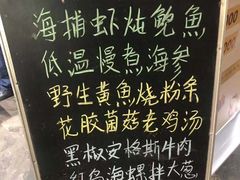 海捕虾炖鲍魚
低温慢煮海参
野生黄魚烧粉余
花胶菌菇老鸡汤
黑椒安格斯牛肉
海螺拌大葱